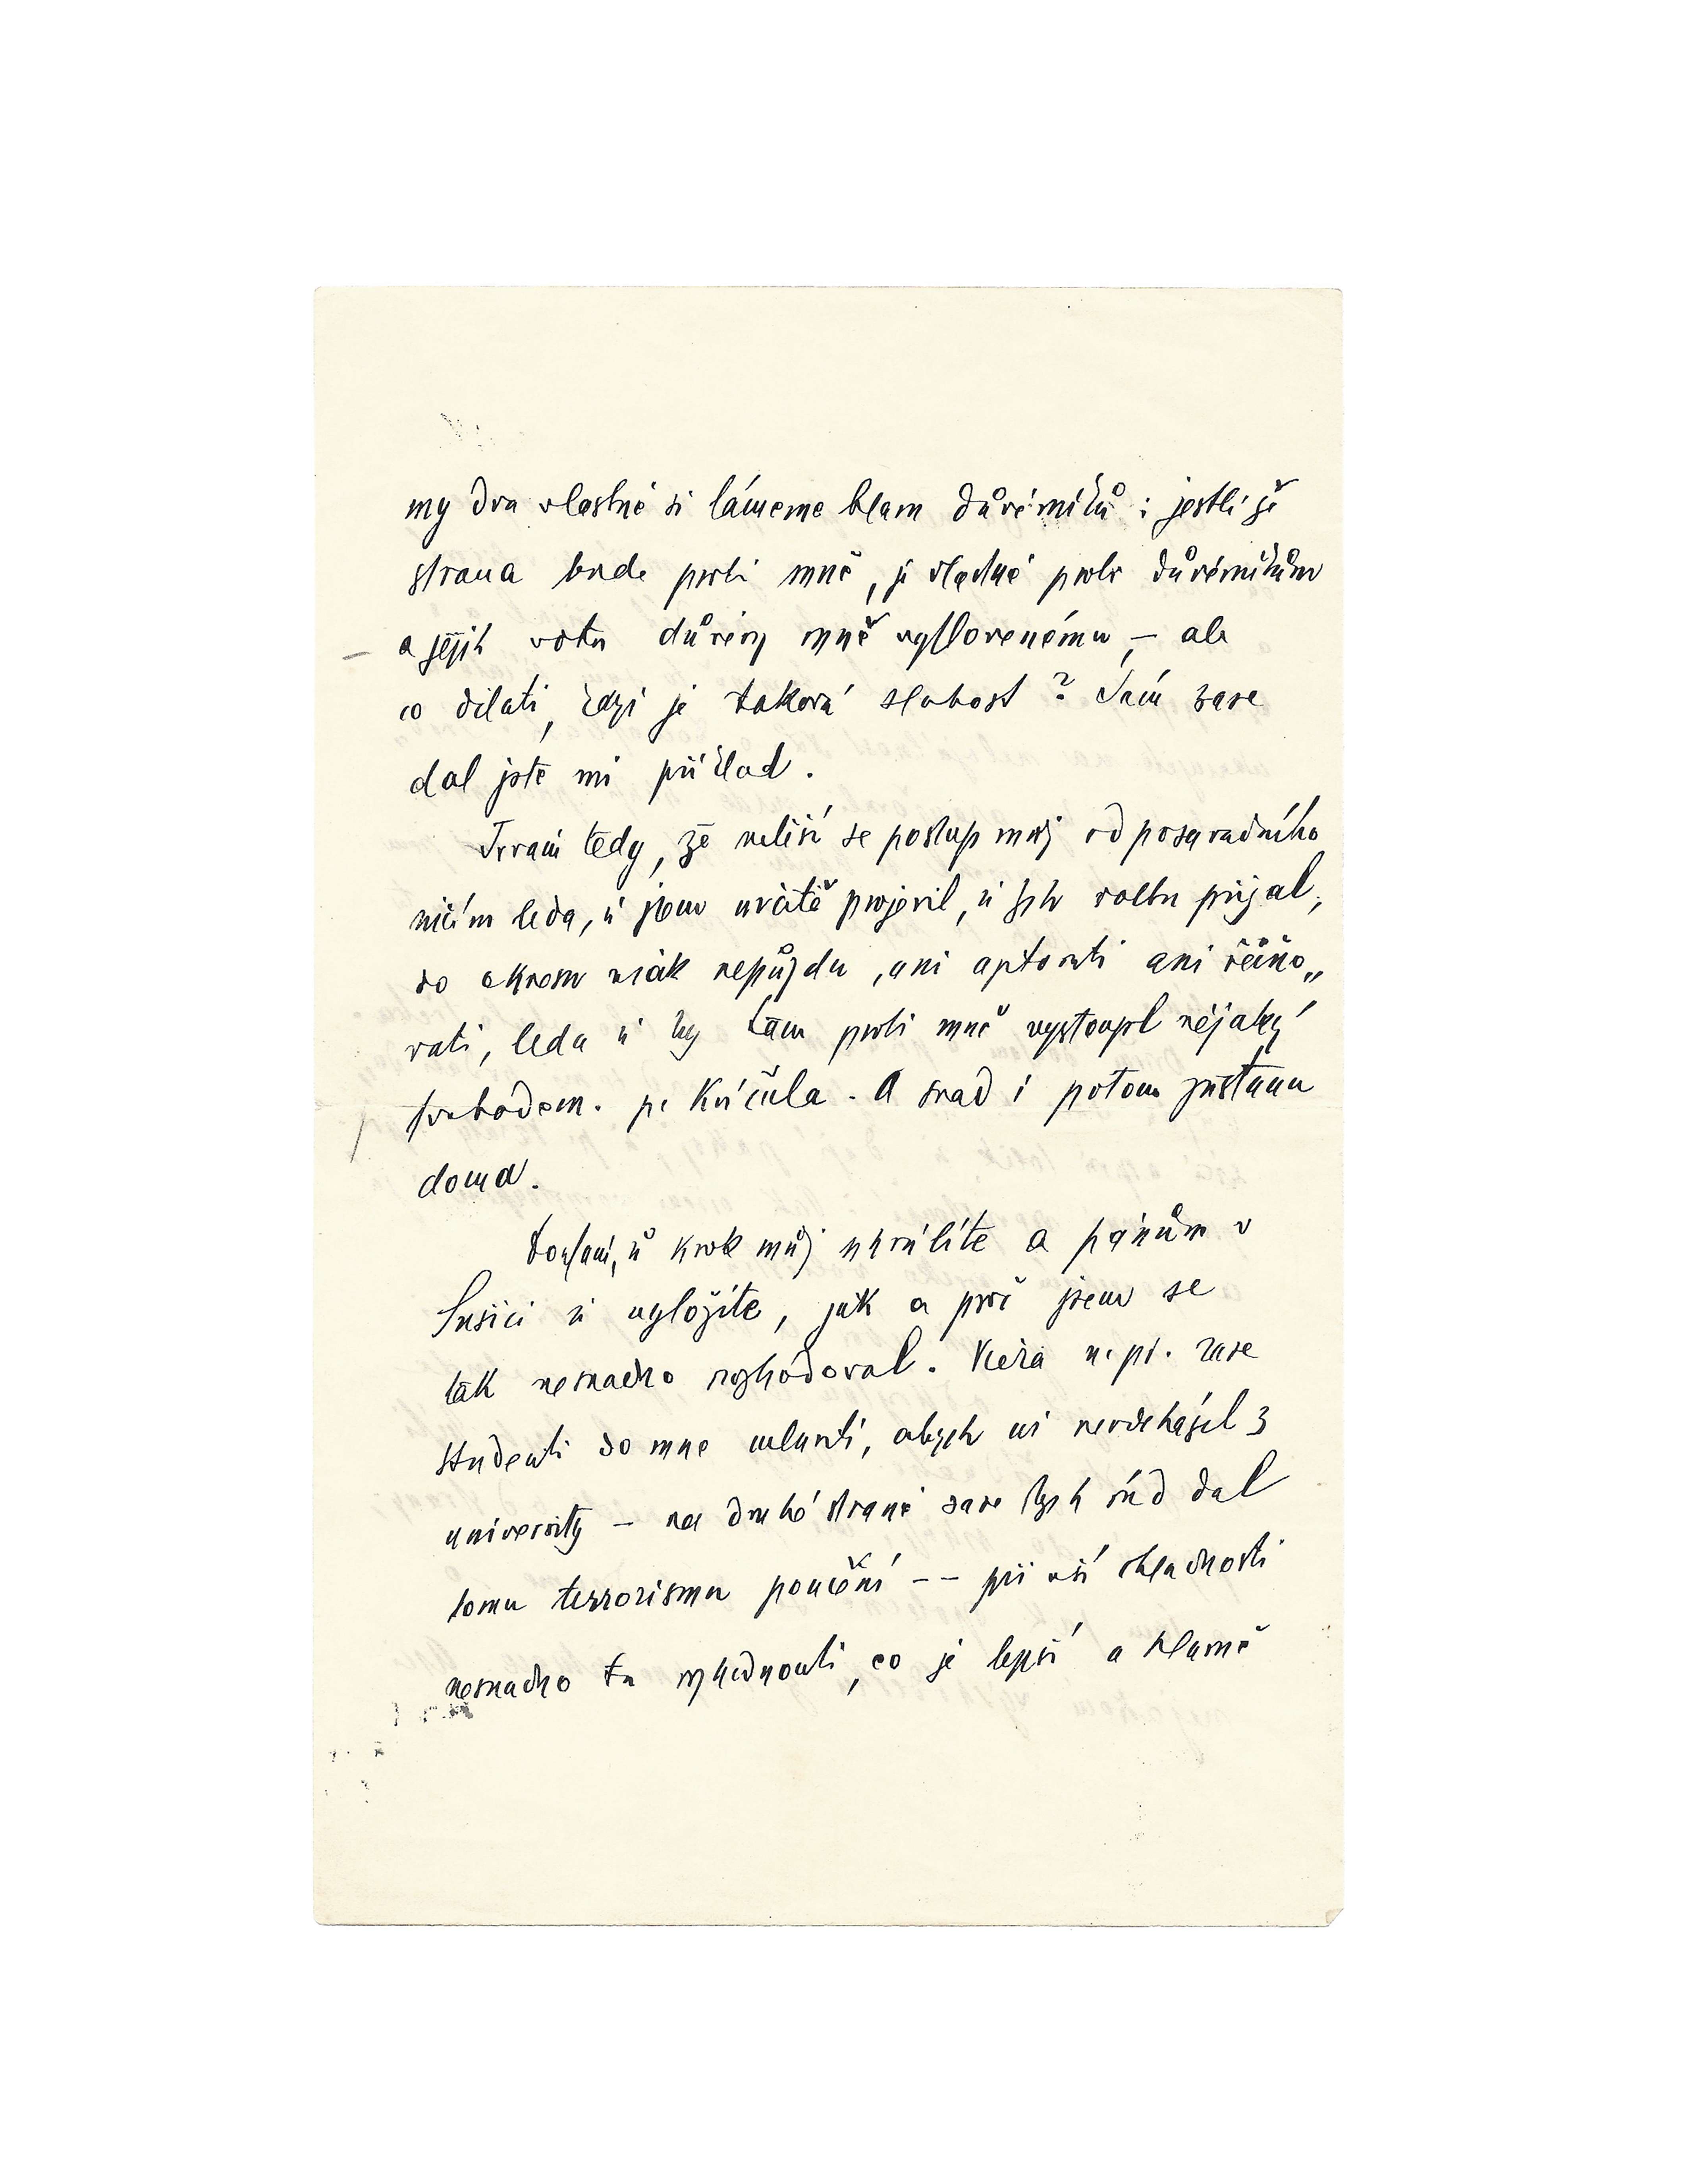 my dva vlastně si lámeme hlavu důvěrníků: jestliže
strana bude proti mně, je vlastně proti důvěrníkům
a jejich votu důvěry mně vyslovenému, – ale
co dělati, když je taková slabost? Sám zase
dal jste mi příklad.
Trvám tedy, že neliší se postup můj od posavadního
ničím leda, že jsem určitě projevil, že bych volbu přijal;
do okresu však nepůjdu, ani agitovati ani řečňo„
vati, leda že by tam proti mně vystoupil nějaký
svobodom. p. Křičula. A snad i potom zůstanu
doma.
Doufám, že krok můj schválíte a pánům v
Sušici že vyložíte, jak a proč jsem se
tak nesnadno rozhodoval. Včera n. př. zase
studenti do mne mluvili, abych už neodcházel z
university – na druhé straně zase bych rád dal
tomu terrorismu poučení -- při vší chladnosti
nesnadno tu rozhodnouti, co je lepší a hlavně